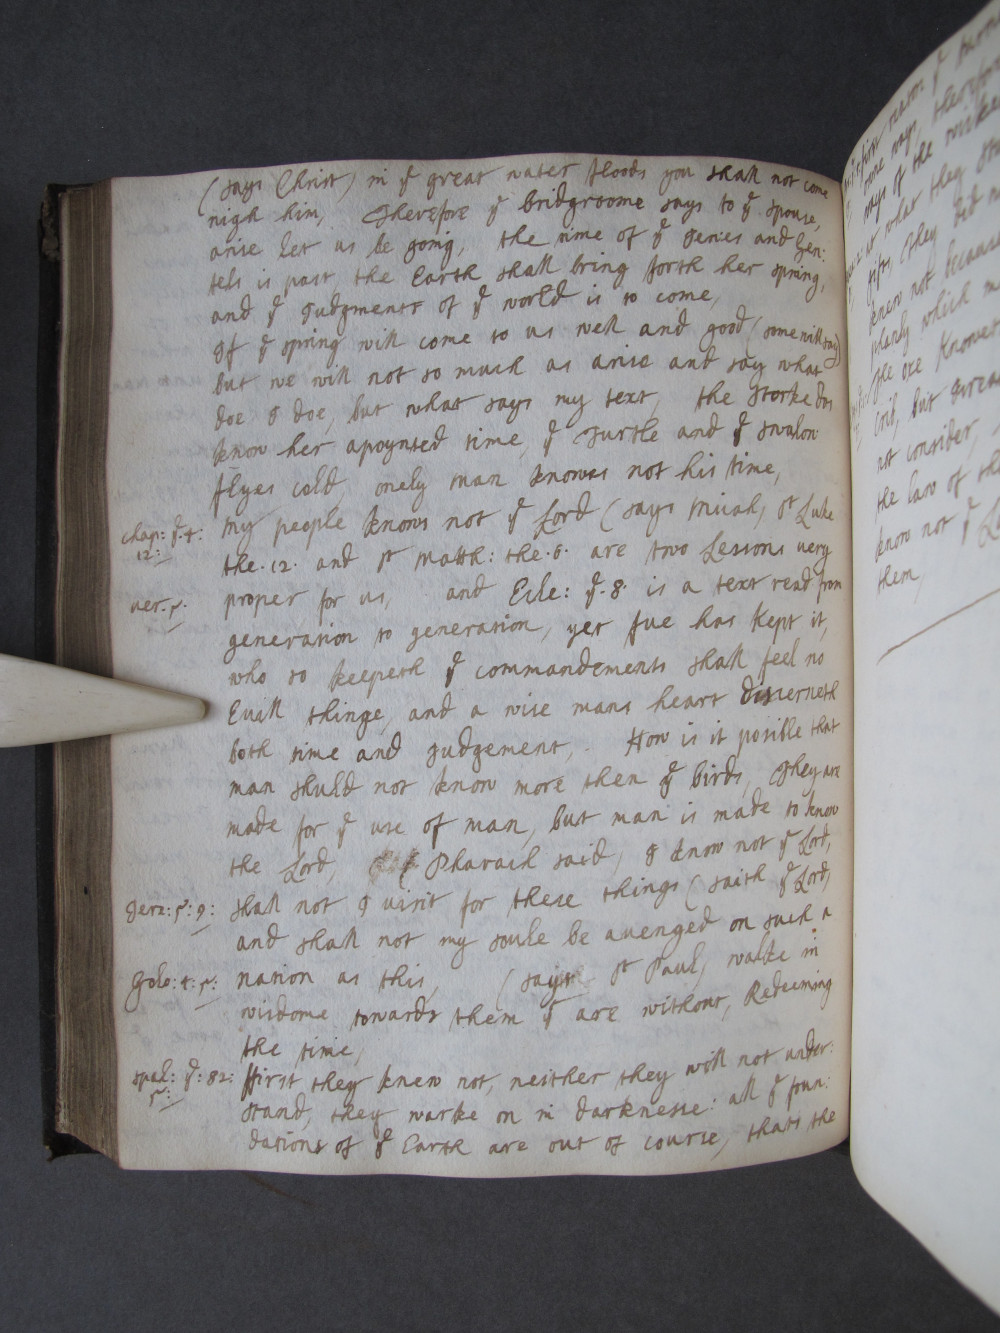 (says Christ) in ye great water floods you shall not come
nigh him, Therefore ye bridgroome says to ye spouse,
arise let us be going, the time of ye Jenies and Gen:
tels is past, the Earth shall bring forth her spring,
and ye Judgments of ye world is to come,
If ye spring will come to us well and good (some will say)
but we will not so much as arise and say what
doe I doe, but what says my text, the Storke dos
know her apoynted time, ye Turtle and ye Swalow
flyes cold, onely man knowes not his time,
chap: ye 4: 12: my people knows not ye Lord (says Micah) St Luke
the .12. and St Matth: the .6. are two Lessons very
ver. 5. proper for us, and Ecle: ye .8. is a text read from
generation to generation, yet fue has kept it,
who so keepeth ye commandements shall feel no
Evill thinge, and a wise mans heart discerneth
both time and Judgement, How is it posible that
man should not know more then ye birds, They are
made for ye use of man, but man is made to know
the Lord, Pharaoh said, I know not ye Lord,
Jere: 5: 9: shall not I visit for these things (saith ye Lord)
and shall not my soule be avenged on such a
Golo: 4: 5: nation as this, (says St Paul) walke in
wisdome towards them yt are without, Redeeming
the time,
spal: ye: 82: 5: ffirst they knew not, neither they will not under:
stand, they warke on in darknesse: all ye foun:
dations of ye Earth are out of course, thats the
first reason
ways, therefore
ways of the wicked
at what they
gifts, They did
knew not because
plainly which
the oxe knowes
crib, but
not consider,
the law of
know not ye
them,